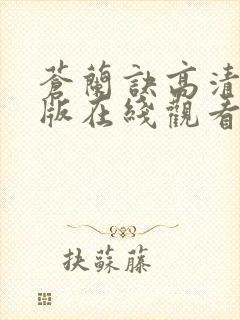 蒼蘭訣高清
版在綫觀看
抉蘇藤